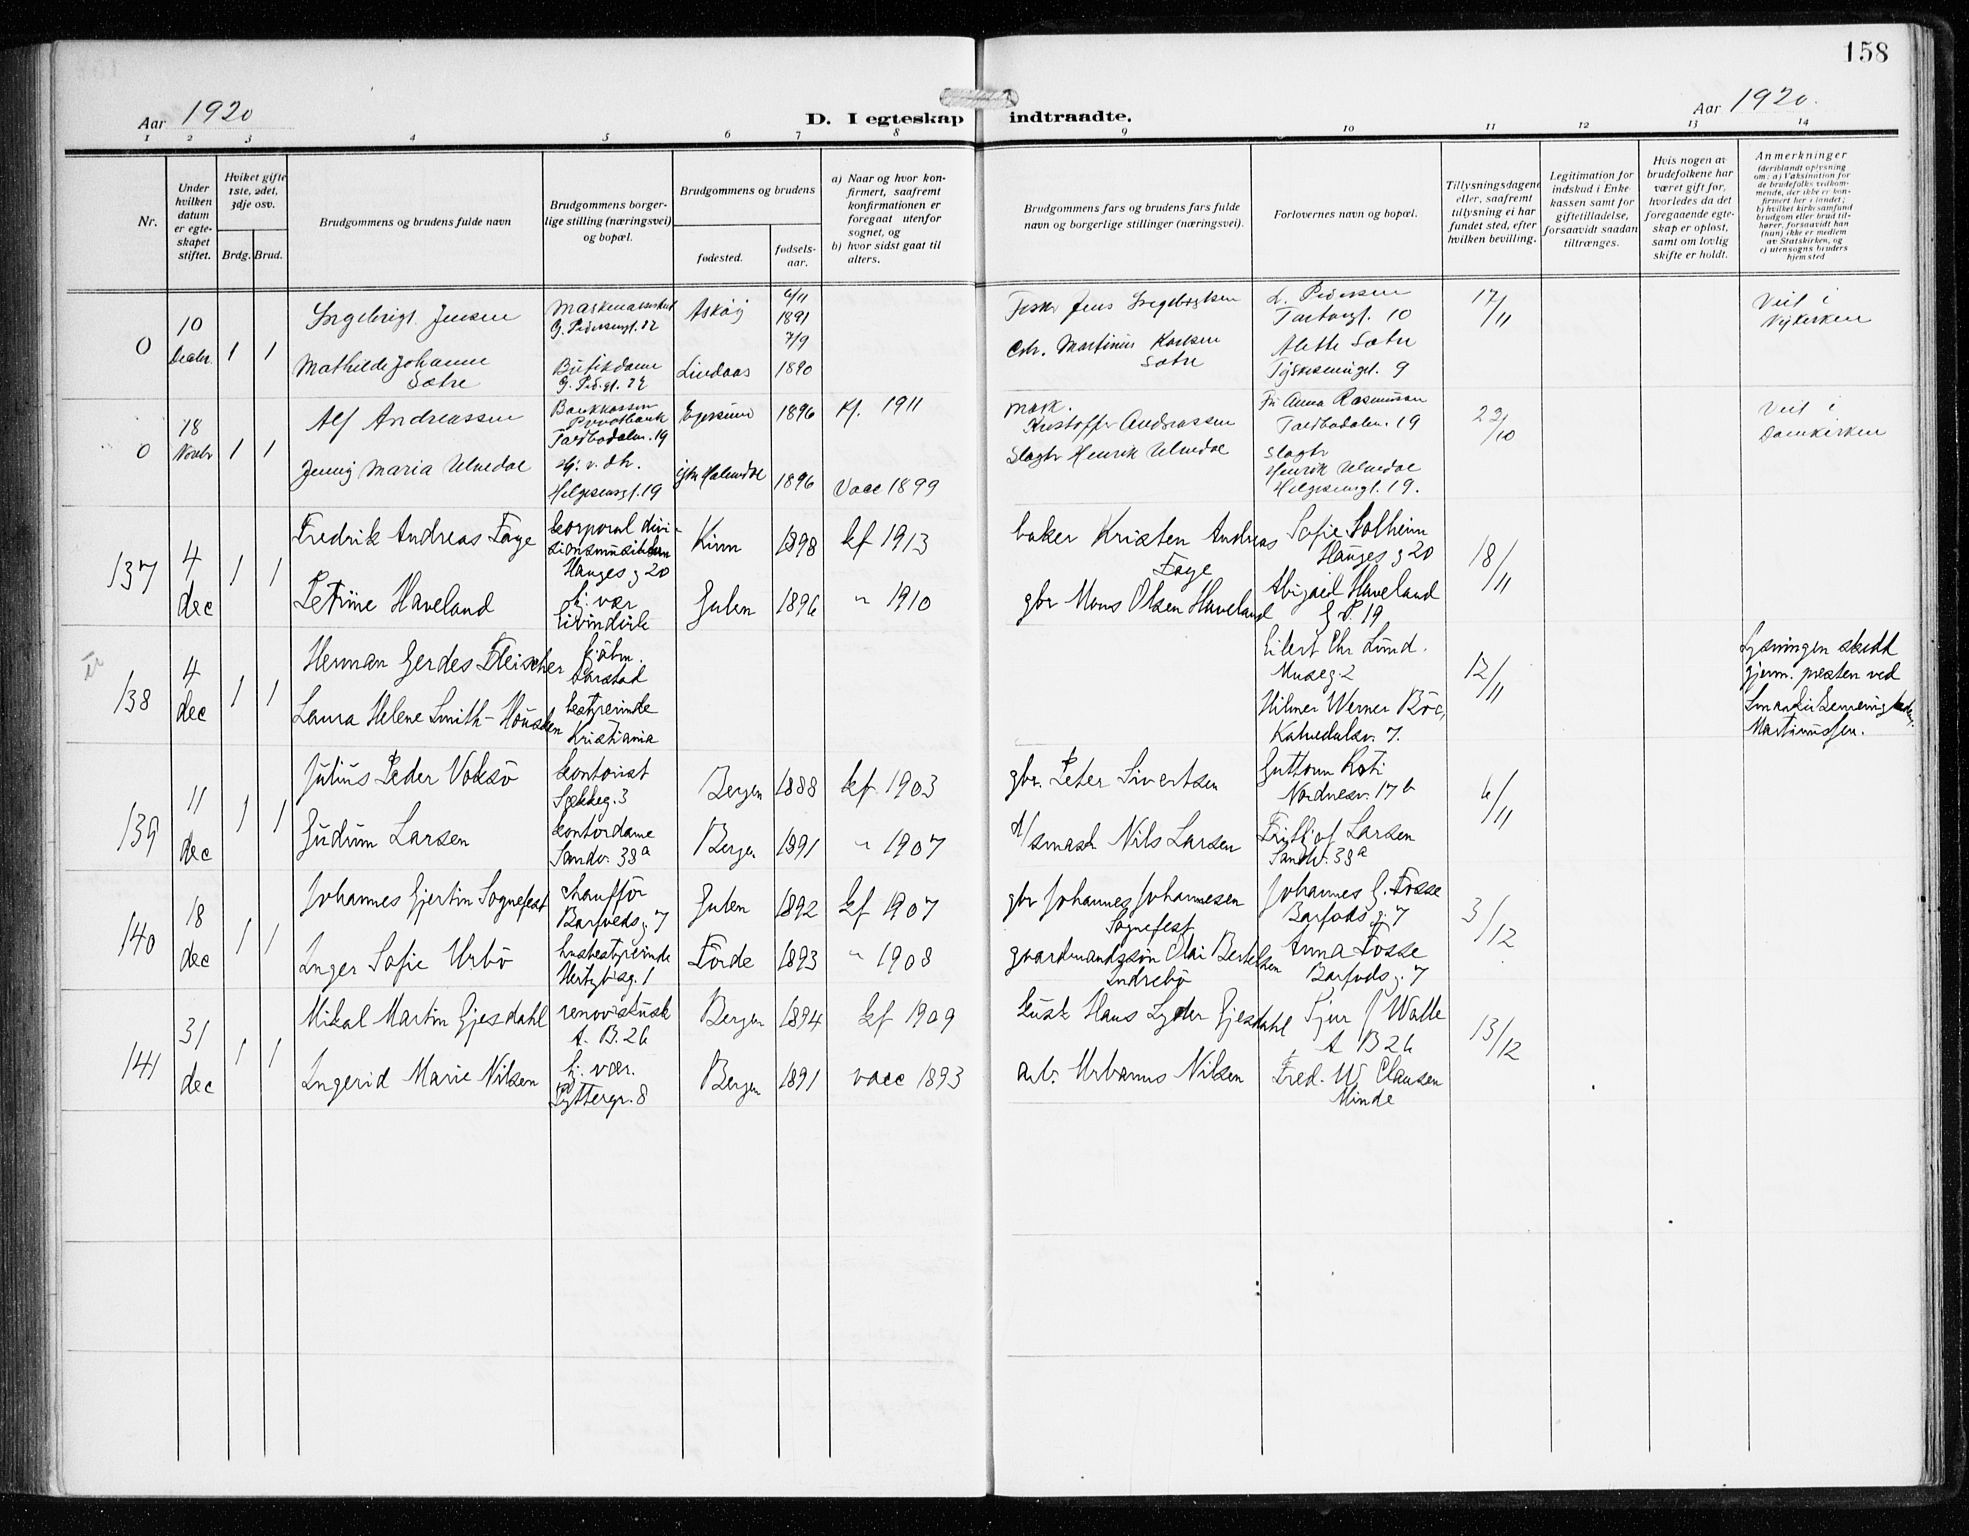 158
Aar 1920
D. I egteskap indtraadte.
Aar 1920.
1 2 3 4 5 6 7 8 9 10 11 12 13 14
Nr.
Under
hvilken
datum
er egte-
skapet
stiftet.
Hviket gifte
1ste, 2det,
3dje osv.
Brdg. Brud.
Brudgommens og brudens fulde navn
Brudgommens borger-
lige stilling (næringsvei)
og bopæl.
Brudgommens og brudens
fødested.
fødsels-
aar.
a) Naar og hvor kon-
firmert, saafremt
konfirmationen er
foregaat utenfor
sognet, og
b) hvor sidst gaat til
alters.
Brudgommens fars og brudens fars fulde
navn og borgerlige stillinger (næringsvei).
Forlovernes navn og bopæl.
Tillysningsdagene
eller, saafremt
tillysning ei har
fundet sted, efter
hvilken bevilling.
Legitimation for
indskud i Enke-
kassen samt for
giftetilladelse,
forsaavidt saadan
tiltrænges.
Hvis nogen av
brudefolkene har
været gift før,
hvorledes da det
foregaaende egte-
skap er opløst,
samt om lovlig
skifte er holdt.
Anmerkninger
(deriblandt oplysning
om: a) Vaksination for
de brudefolks vedkom-
mende, der ikke er kon-
firmert her i landet;
b) hvilket kirkesamfund
brudgom eller brud til-
hører, forsaavidt han
(hun) ikke er medlem
av Statskirken, og
c) utensogns bruders
hjemsted
0
10
1 1
Ingebrigt Jensen
G. Pedersengt. 22
Askøy
6/11
1891
Jens Ingebrigtsen
L. Pedersen
10
17/11
Viet i
Nykirken
Mathilde Johanne
Sætre
Butikdame
Lindaas
7/9
1890
Martinius Karlsen
Sætre
Alette Sætre
9
0
18
Novbr
1 1
Alf Andreassen
Privatbank
Tartbodalm. 19
Egersund
1896
Kf. 1911
Kristoffer Andreassen
Frk Anna Rasmussen
19
22/10
Viet i
Domkirken
Jenny Maria Ulvedal
Hj. v. dh.
Helgesensgt. 19
1896
Vacc 1899
Slagtr Henrik Ulvedal
Slagtr
Henrik Ulvedal
Helgesensgt. 19.
137
4
dec
1 1
Fredrik Andreas Faye
korporal divi-
sionsmusikken
Hauges g 20
Kinn
1898
kf 1913
baker Kristen Andreas
Faye
Sofie Solheim
Hauges g 20
18/11
Petrine Haveland
hj. vær
Eivindvik
Gulen
1896
" 1910
gbr Mons Olsen Haveland
Abigael Haveland
19
138
4
dec
1 1
Herman Gerdes Fleischer
Harstad
Eilert Chr Lund.
Museg 2
12/11
Lysningen skedd
gjenn. presten ved
Laura Helene Smith-Housken
bestyrerinde
Kristiania
Hilmer Werner Böe,
Katedralsv. 7.
Martinussen.
139
11
dec
1 1
Julius Peder Voksö
kontorist
Sækkeg. 3
Bergen
1888
kf 1903
gbr. Peter Sivertsen
Guttorm Roti
Nordnesv. 17 b
6/11
Gudrun Larsen
kontordame
Sandv. 38a
Bergen
1891
" 1907
d/smask Nils Larsen
Frithjof Larsen
Sandv. 38a
140
18
dec
1 1
Johannes Gjertin Sognefest
chauffør
Barfoeds g. 7
Gulen
1892
kf 1907
gbr Johannes Johannesen
Sognefest
Johannes G. Fosse
Barfods g. 7
3/12
Inger Sofie Urbö
husbestyrerinde
Hertzbisg. 1
Förde
1893
" 1908
gaardmandssøn Olai Bertelsen
Indrebö
Anna Fosse
Barfods g. 7
141
31
dec
1 1
Mikal Martin Gjesdahl
renov. kusk
A. B. 26
Bergen
1894
kf 1909
kusk Hans Lyder Gjesdahl
Sjur J Walle
A B 26
13/12
Ingerid Marie Nilsen
hj. vær.
Pyttergr. 8
Bergen
1891
vacc 1893
arb. Urbanus Nilsen
Fred. W. Clausen
Minde